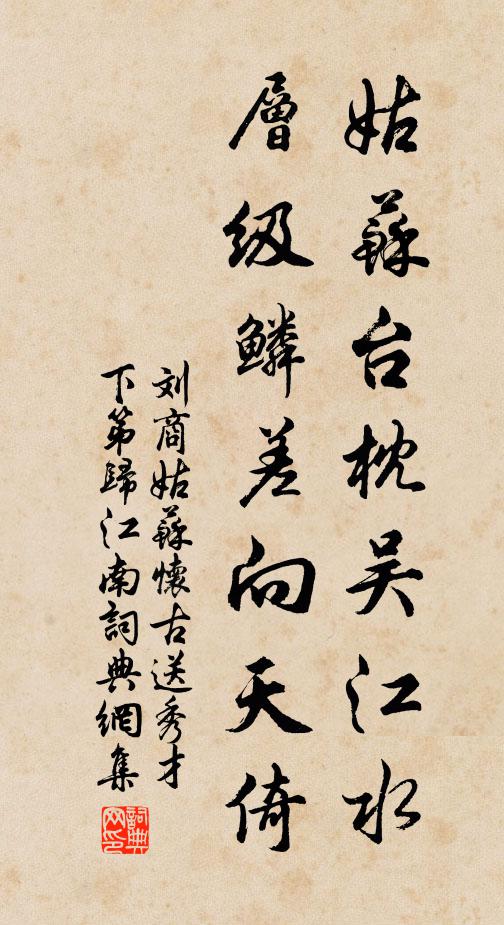 姑蘇台枕吴江水
層级鳞差向天倚
刘商姑蘇懷古送秀才
下第歸江南詞典網集
詞典
网印